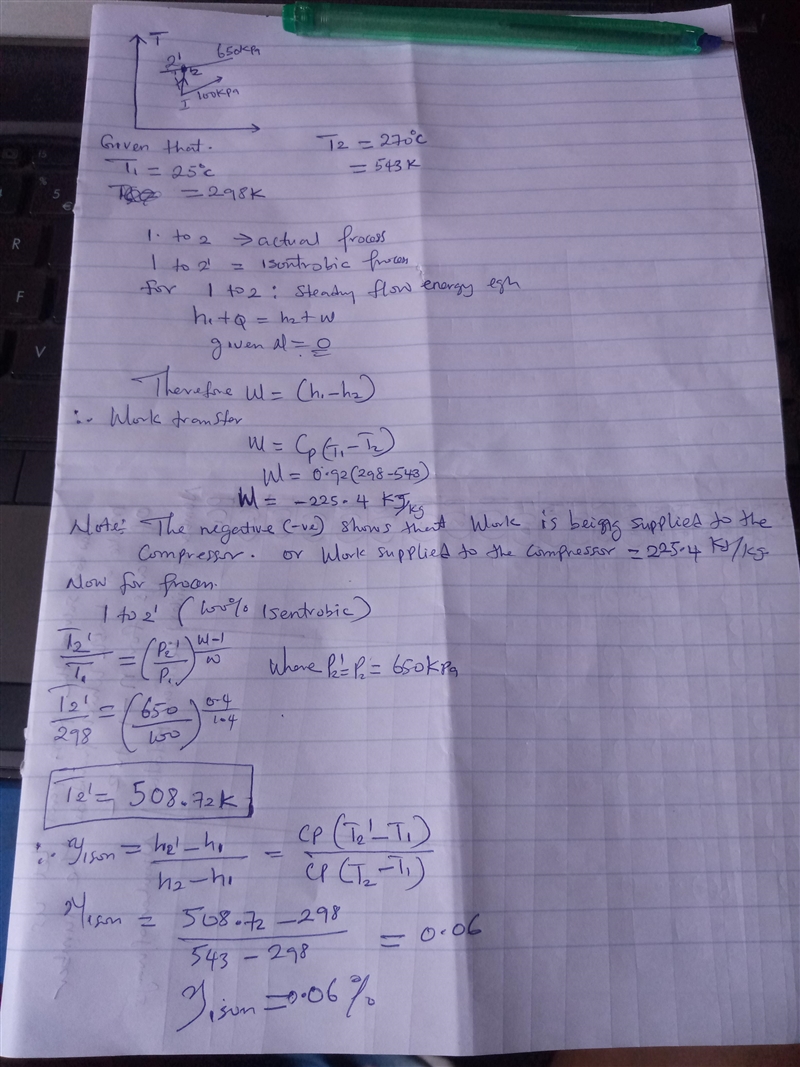 T
2' 650kPa
2
1 100kPa
Given that. T2 = 270°c
T1 = 25°c = 543K
= 298K
1. to 2 → actual process
1 to 2' = Isentrobic process.
for 1 to 2 : Steady flow energy eqn
h1 + Q = h2 + W
given = 0
Therefore W = (h1 - h2)
∴ Work transfer
W = Cp(T1 - T2)
W = 0.92(298-543)
W = -225.4 KJ/kg
Note: The negative (-ve) shows that Work is being supplied to the
Compressor. or Work supplied to the Compressor = 225.4 KJ/kg.
Now for process.
1 to 2' (100% Isentrobic)
T2'/T1 = (P2'/P1)^(n-1/n) Where P2' = P2 = 650KPa
T2'/298 = (650/100)^(0.4/1.4)
T2' = 508.72K
∴ ηisen = h2' - h1 / h2 - h1 = CP(T2' - T1) / CP(T2 - T1)
ηisen = 508.72 - 298 / 543 - 298 = 0.06
ηisen = 0.06 %